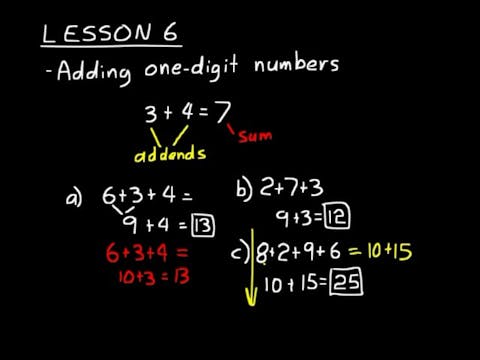 LESSON 6
- Adding one-digit numbers
3 + 4 = 7
addends
sum
a) 6+3+4 =
9 + 4 = 13
6+3+4 =
10+3 = 13
b) 2+7+3
9+3= 12
c) 8+2+9+6 = 10+15
10 + 15 = 25